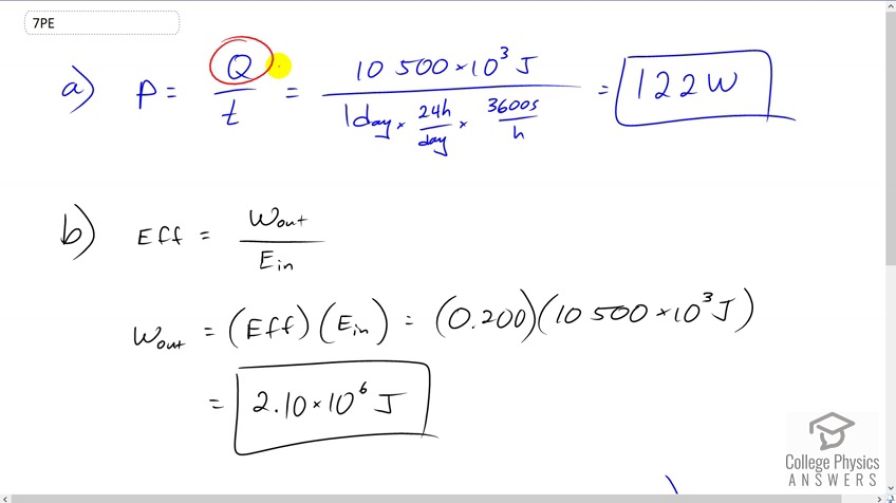 7PE
a) P = Q/t = 10 500×10³ J / 1day × 24h/day × 3600s/h = 122W
b) Eff = Wout/Ein
Wout = (Eff)(Ein) = (0.200)(10 500×10³ J)
= 2.10×10⁶ J
College Physics
ANSWERS